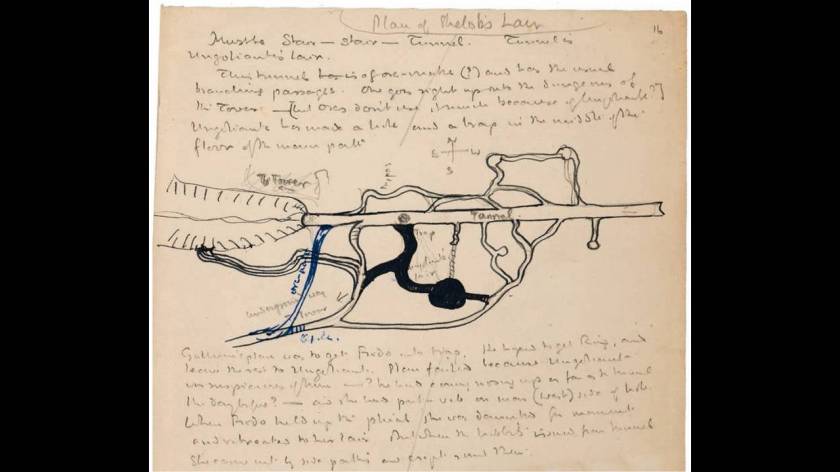 Plan of Shelob's Lair
16
Must be Stair — stair — Tunnel. Tunnel is
Ungoliante's lair.
This tunnel is of orc-make (?) and has the usual
branching passages. One goes right up into the dungeons of
the Tower — [but orcs don't use it much because of Ungoliante?]
Ungoliante has made a hole and a trap in the middle of the
floor of the main path
N
E W
S
To Tower
Tunnel
trap
Ungoliante's
lair
orc-path
underground way
Tower
Gollum's plan was to get Frodo into trap. He hoped to get Ring, and
leave the rest to Ungoliante. Plan failed because Ungoliante
was suspicious of him — ? he had come nosing up as far as tunnel
the day before? — and she had put webs on near (west) side of hole.
When Frodo held up the phial she was daunted for moment
and retreated to her lair. But when the hobbits issued from tunnel
she came out by side paths and crept round them.